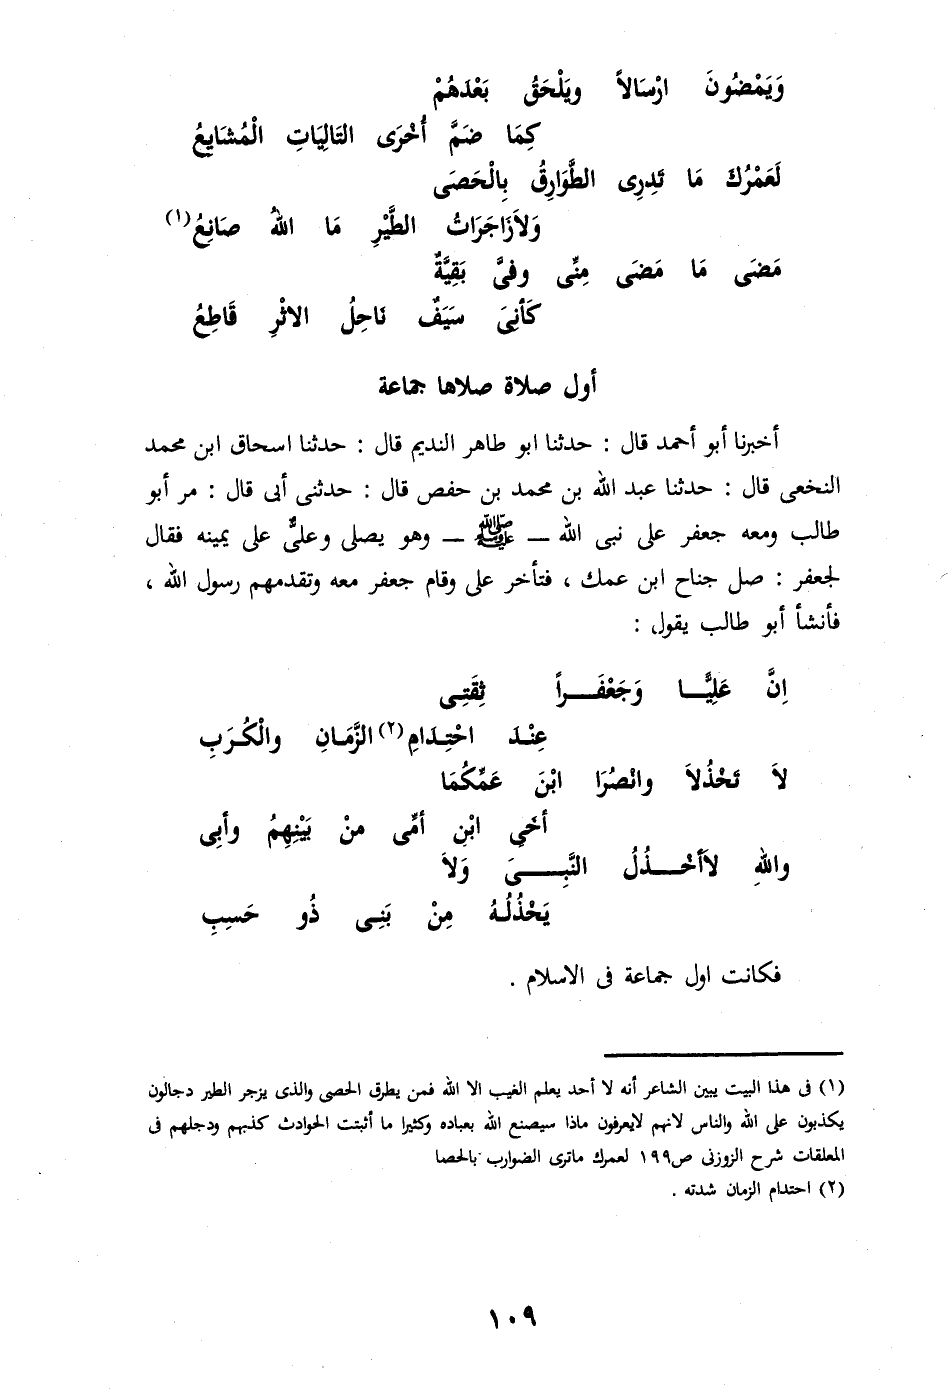 وَيَمْضُونَ ارْسَالاً ويَلْحَقُ بَعْدَهُمْ
كِمَا ضَمَّ أُخْرَى التَالِيَاتِ الْمُشَايِعُ
لَعَمْرُكَ مَا تَدِرِى الطَّوَارِقُ بِالْحَصَى
وَلاَزَاجَرَاتُ الطَّيْرِ مَا اللهُ صَانِعُ(١)
مَضَى مَا مَضَى مِنِّى وفىَّ بَقِيَّةٌ
كَأنِىَ سَيَفٌ نَاحِلُ الاثْرِ قَاطِعُ
أول صلاة صلاها جماعة
أخبرنا أبو أحمد قال : حدثنا ابو طاهر النديم قال : حدثنا اسحاق ابن محمد
النخعى قال : حدثنا عبد الله بن محمد بن حفص قال : حدثنى أبى قال : مر أبو
طالب ومعه جعفر على نبى الله ــ ﷺ ــ وهو يصلى وعلىٌّ على يمينه فقال
لجعفر : صل جناح ابن عمك ، فتأخر على وقام جعفر معه وتقدمهم رسول الله ،
فأنشأ أبو طالب يقول :
اِنَّ عَلِيًّـــا وَجَعْفَـــراً ثِقَتِـى
عِنْـدَ احْتِـدَامِ(٢) الزَّمَـانِ والْكُـرَبِ
لاَ تَخْذُلاَ وانْصُرَا ابْنَ عَمِّكُمَا
أخَىِ ابْنِ أمِّى منْ بَيْنِهِمُ وأبِى
واللهِ لاَأخْـــذُلُ النَّبِـــــىَ وَلاَ
يَخْذُلُـهُ مِنْ بَنِـى ذُو حَسبِ
فكانت اول جماعة فى الاسلام .
(١) فى هذا البيت يبين الشاعر أنه لا أحد يعلم الغيب الا الله فمن يطرق الحصى والذى يزجر الطير دجالون
يكذبون على الله والناس لانهم لايعرفون ماذا سيصنع الله بعباده وكثيرا ما أثبتت الحوادث كذبهم ودجلهم فى
المعلقات شرح الزوزنى ص١٩٩ لعمرك ماترى الضوارب بالحصا
(٢) احتدام الزمان شدته .
١٠٩